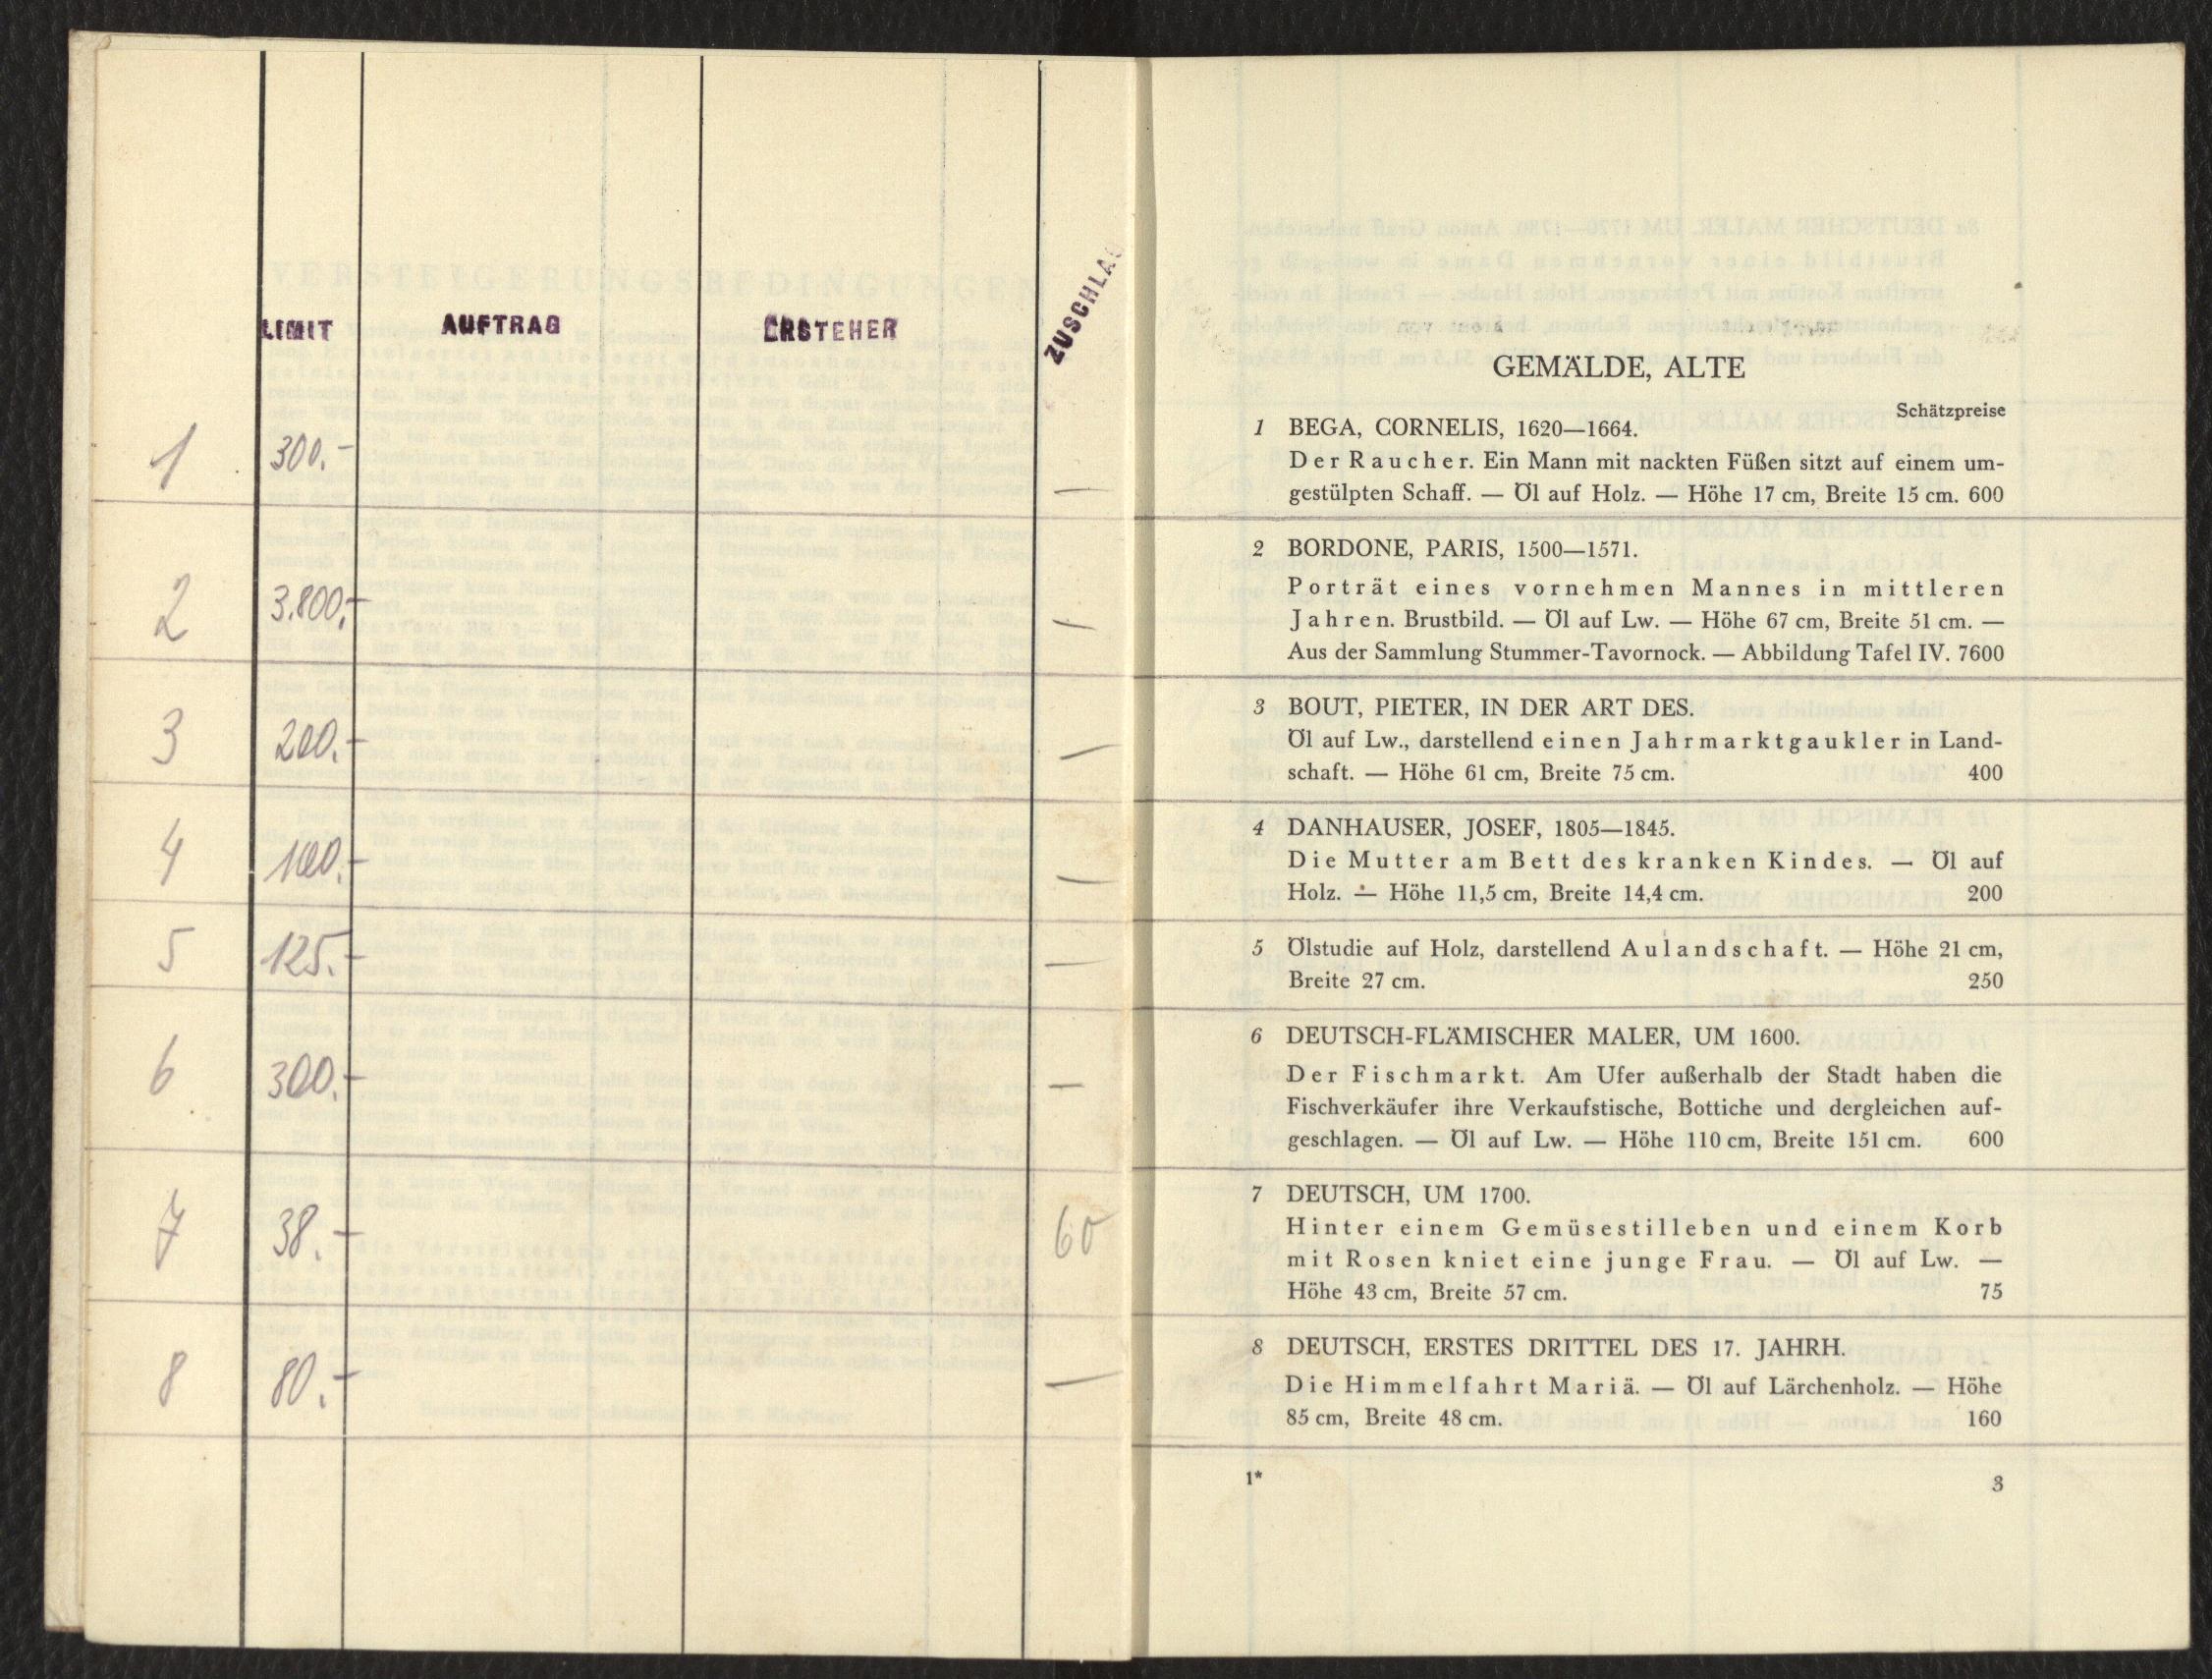 LIMIT AUFTRAG ERSTEHER ZUSCHLAG
1 300.- —
2 3.800.- —
3 200.- —
4 100.- —
5 125.- —
6 300.- —
7 38.- 60
8 80.- —
GEMÄLDE, ALTE
Schätzpreise
1 BEGA, CORNELIS, 1620—1664.
Der Raucher. Ein Mann mit nackten Füßen sitzt auf einem um-
gestülpten Schaff. — Öl auf Holz. — Höhe 17 cm, Breite 15 cm. 600
2 BORDONE, PARIS, 1500—1571.
Porträt eines vornehmen Mannes in mittleren
Jahren. Brustbild. — Öl auf Lw. — Höhe 67 cm, Breite 51 cm. —
Aus der Sammlung Stummer-Tavornock. — Abbildung Tafel IV. 7600
3 BOUT, PIETER, IN DER ART DES.
Öl auf Lw., darstellend einen Jahrmarktgaukler in Land-
schaft. — Höhe 61 cm, Breite 75 cm. 400
4 DANHAUSER, JOSEF, 1805—1845.
Die Mutter am Bett des kranken Kindes. — Öl auf
Holz. — Höhe 11,5 cm, Breite 14,4 cm. 200
5 Ölstudie auf Holz, darstellend Aulandschaft. — Höhe 21 cm,
Breite 27 cm. 250
6 DEUTSCH-FLÄMISCHER MALER, UM 1600.
Der Fischmarkt. Am Ufer außerhalb der Stadt haben die
Fischverkäufer ihre Verkaufstische, Bottiche und dergleichen auf-
geschlagen. — Öl auf Lw. — Höhe 110 cm, Breite 151 cm. 600
7 DEUTSCH, UM 1700.
Hinter einem Gemüsestilleben und einem Korb
mit Rosen kniet eine junge Frau. — Öl auf Lw. —
Höhe 43 cm, Breite 57 cm. 75
8 DEUTSCH, ERSTES DRITTEL DES 17. JAHRH.
Die Himmelfahrt Mariä. — Öl auf Lärchenholz. — Höhe
85 cm, Breite 48 cm. 160
1* 3